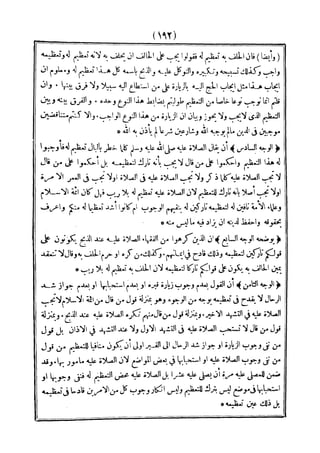 (١٩٢)
(وأيضا) فان الحلف به تعظيم له فقولوا يجب على الحالف ان يحلف به لانه تعظيم له وتعظيمه
واجب وكذلك تسبيحه وتكبيره والتوكل عليه والذبح باسمه كل هذا تعظيم له ومعلوم ان
ايجاب هذا مثل ايجاب الحج اليه بالزيارة على من استطاع اليه سبيلا ولا فرق بينها * وان
قلتم انما نوجب نوعا خاصا من التعظيم طولبتم بضابط هذا النوع وحده * والفرق بينه وبين
التعظيم الذي لا يجب ولا يجوز وبيان ان الزيارة من هذا النوع الواجب * والا كنتم متناقضين
موجبين في الدين مالم يوجبه الله وشارعين شرعا لم يأذن به الله *
(الوجه السادس) أن يقال الصلاة عليه صلى الله عليه وسلم كلما خطر بالبال تعظيم له فأوجبوا
له هذا التعظيم واحكموا على من قال لا يجب بأنه تارك لتعظيمه بل أحكموا على من قال
لا تجب الصلاة عليه كلما ذكر ولا تجب الصلاة عليه في الصلاة ولا تجب في العمر الا مرة
أولا تجب أصلا بانه تارك للتعظيم لان الصلاة عليه تعظيم له بلا ريب فهل كان ائمة الاسلام
وعلماء الأمة نافين له لتعظيمه تاركين له بنفيهم الوجوب ام كانوا أشد تعظيما له منكم واعرف
بحقوقه واحفظ لدينه ان يزاد فيه ما ليس منه *
(يوضحه الوجه السابع) ان الذين كرهوا من الفقهاء الصلاة عليه عند الذبح يكونون على
قولكم تاركين لتعظيمه وذلك قادح في ايمانهم * وكذلك من كره أو حرم الحلف به وقال لا تنعقد
يمين الحالف به يكون على قولكم تاركا لتعظيمه لان الحلف به تعظيم له بلا ريب *
(الوجه الثامن) أن القول بعدم وجوب زيارة قبره أو بعدم استحبابها او بعدم جواز شد
الرحال لا يقدح في تعظيمه بوجه من الوجوه وهو بمنزلة قول من قال من ائمة الاسلام لا تجب
الصلاة عليه في التشهد الاخير * وبمنزلة قول من قال منهم تكره الصلاة عليه عند الذبح * وبمنزلة
قول من قال لا تستحب الصلاة عليه في التشهد الاول ولا عند التشهد في الاذان بل قول
من نفى وجوب الزيارة أو جواز شد الرحال الى القبر اولى أن يكون منافيا للتعظيم من قول
من نفى وجوب الصلاة عليه أو استحبابها في بعض المواضع لان الصلاة عليه مأمور بها * وقد
ضمن للمصلى عليه مرة أن يصلى عليه عشرا بل الصلاة عليه محض التعظيم له فنفى وجوبها او
استحبابها في موضع ليس بترك للتعظيم وليس انكار وجوب كل من الامرين قادحا في تعظيمه
بل ذلك عين تعظيمه *